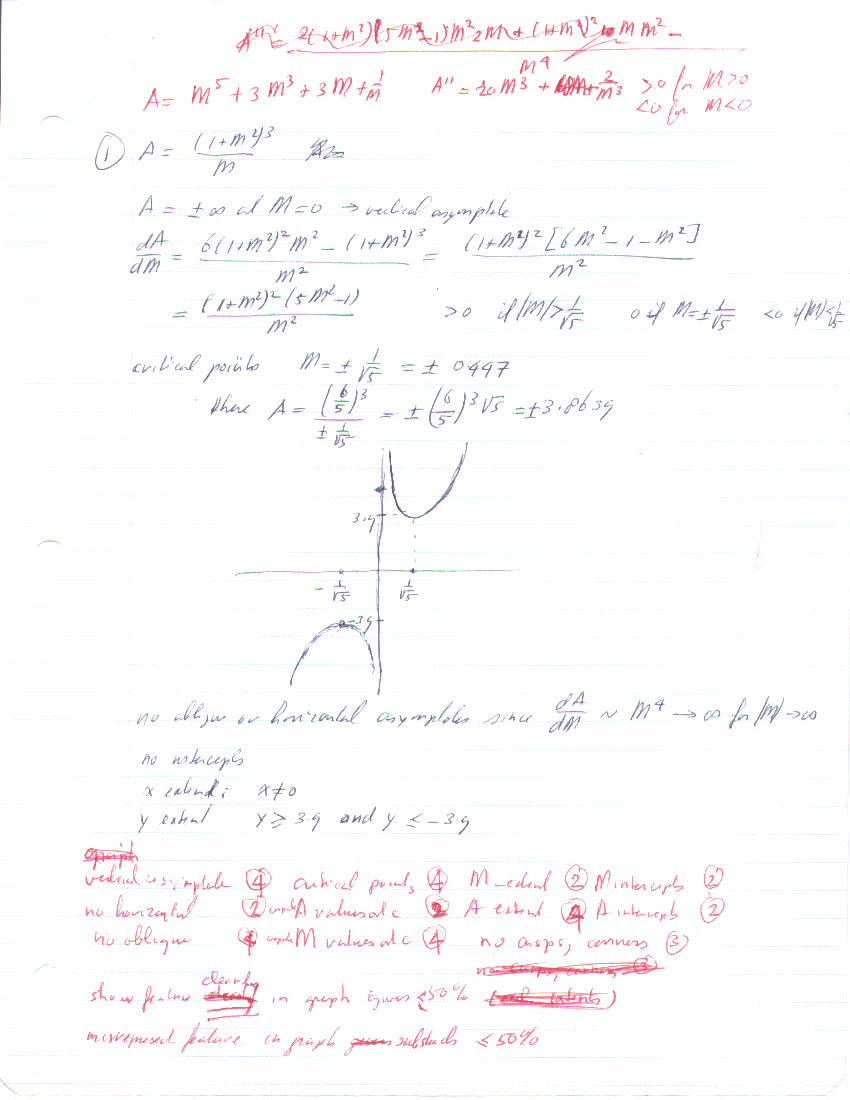 A''' = 2(1+m²)(5m²-1)m² 2m + (1+m²)² 10 m m² -
A = m⁵ + 3m³ + 3m + 1/m A'' = 20m³ + + 2/m³ >0 for m>0
m⁴ <0 for m<0
① A = (1+m²)³/m
A = ±∞ at m=0 → vertical asymptote
dA/dm = (6(1+m²)²m² - (1+m²)³)/m² = (1+m²)²[6m²-1-m²]/m²
= (1+m²)²(5m²-1)/m² >0 if |m|>1/√5 0 if m=±1/√5 <0 if |m|<1/√5
critical points m = ± 1/√5 = ± 0447
there A = (6/5)³/(± 1/√5) = ±(6/5)³√5 = ±3.8639
3.9
- 1/√5 1/√5
-3.9
no oblique or horizontal asymptotes since dA/dm ~ m⁴ → ∞ for |m| → ∞
no intercepts
x extend: x≠0
y extend y ≥ 3.9 and y ≤ -3.9
graph
vertical asymptote ④ critical points ④ M-extend ② M intercepts ②
no horizontal ② A values at c ② A extend ④ A intercepts ②
no oblique ④ M values at c ④ no cusps, corners ③
no cusps, corners ③
show feature clearly in graph gives ≤50%
misrepresent feature in graph ≤50%